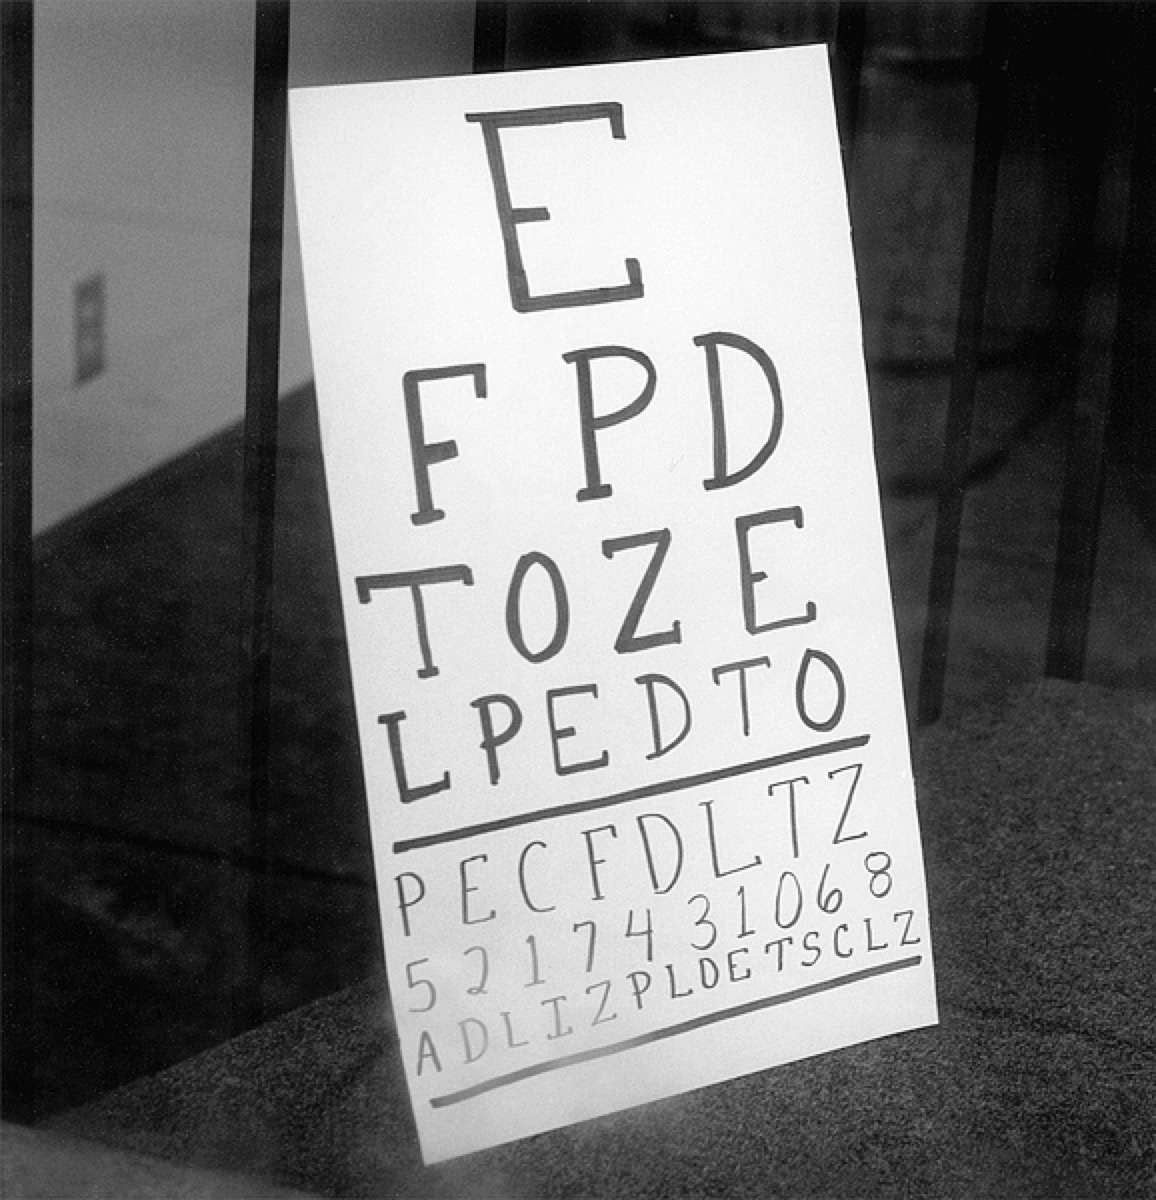 E
F P D
T O Z E
L P E D T O
P E C F D L T Z
5 2 1 7 4 3 1 0 6 8
A D L I Z P L D E T S C L Z